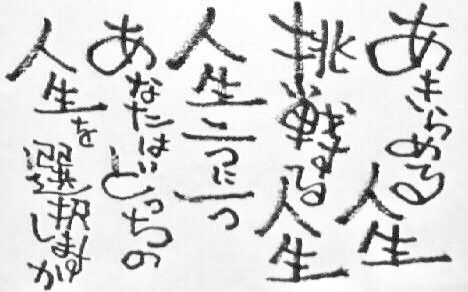 あきらめる人生
挑戦する人生
人生二つに一つ
あなたはどっちの
人生を選択しますか